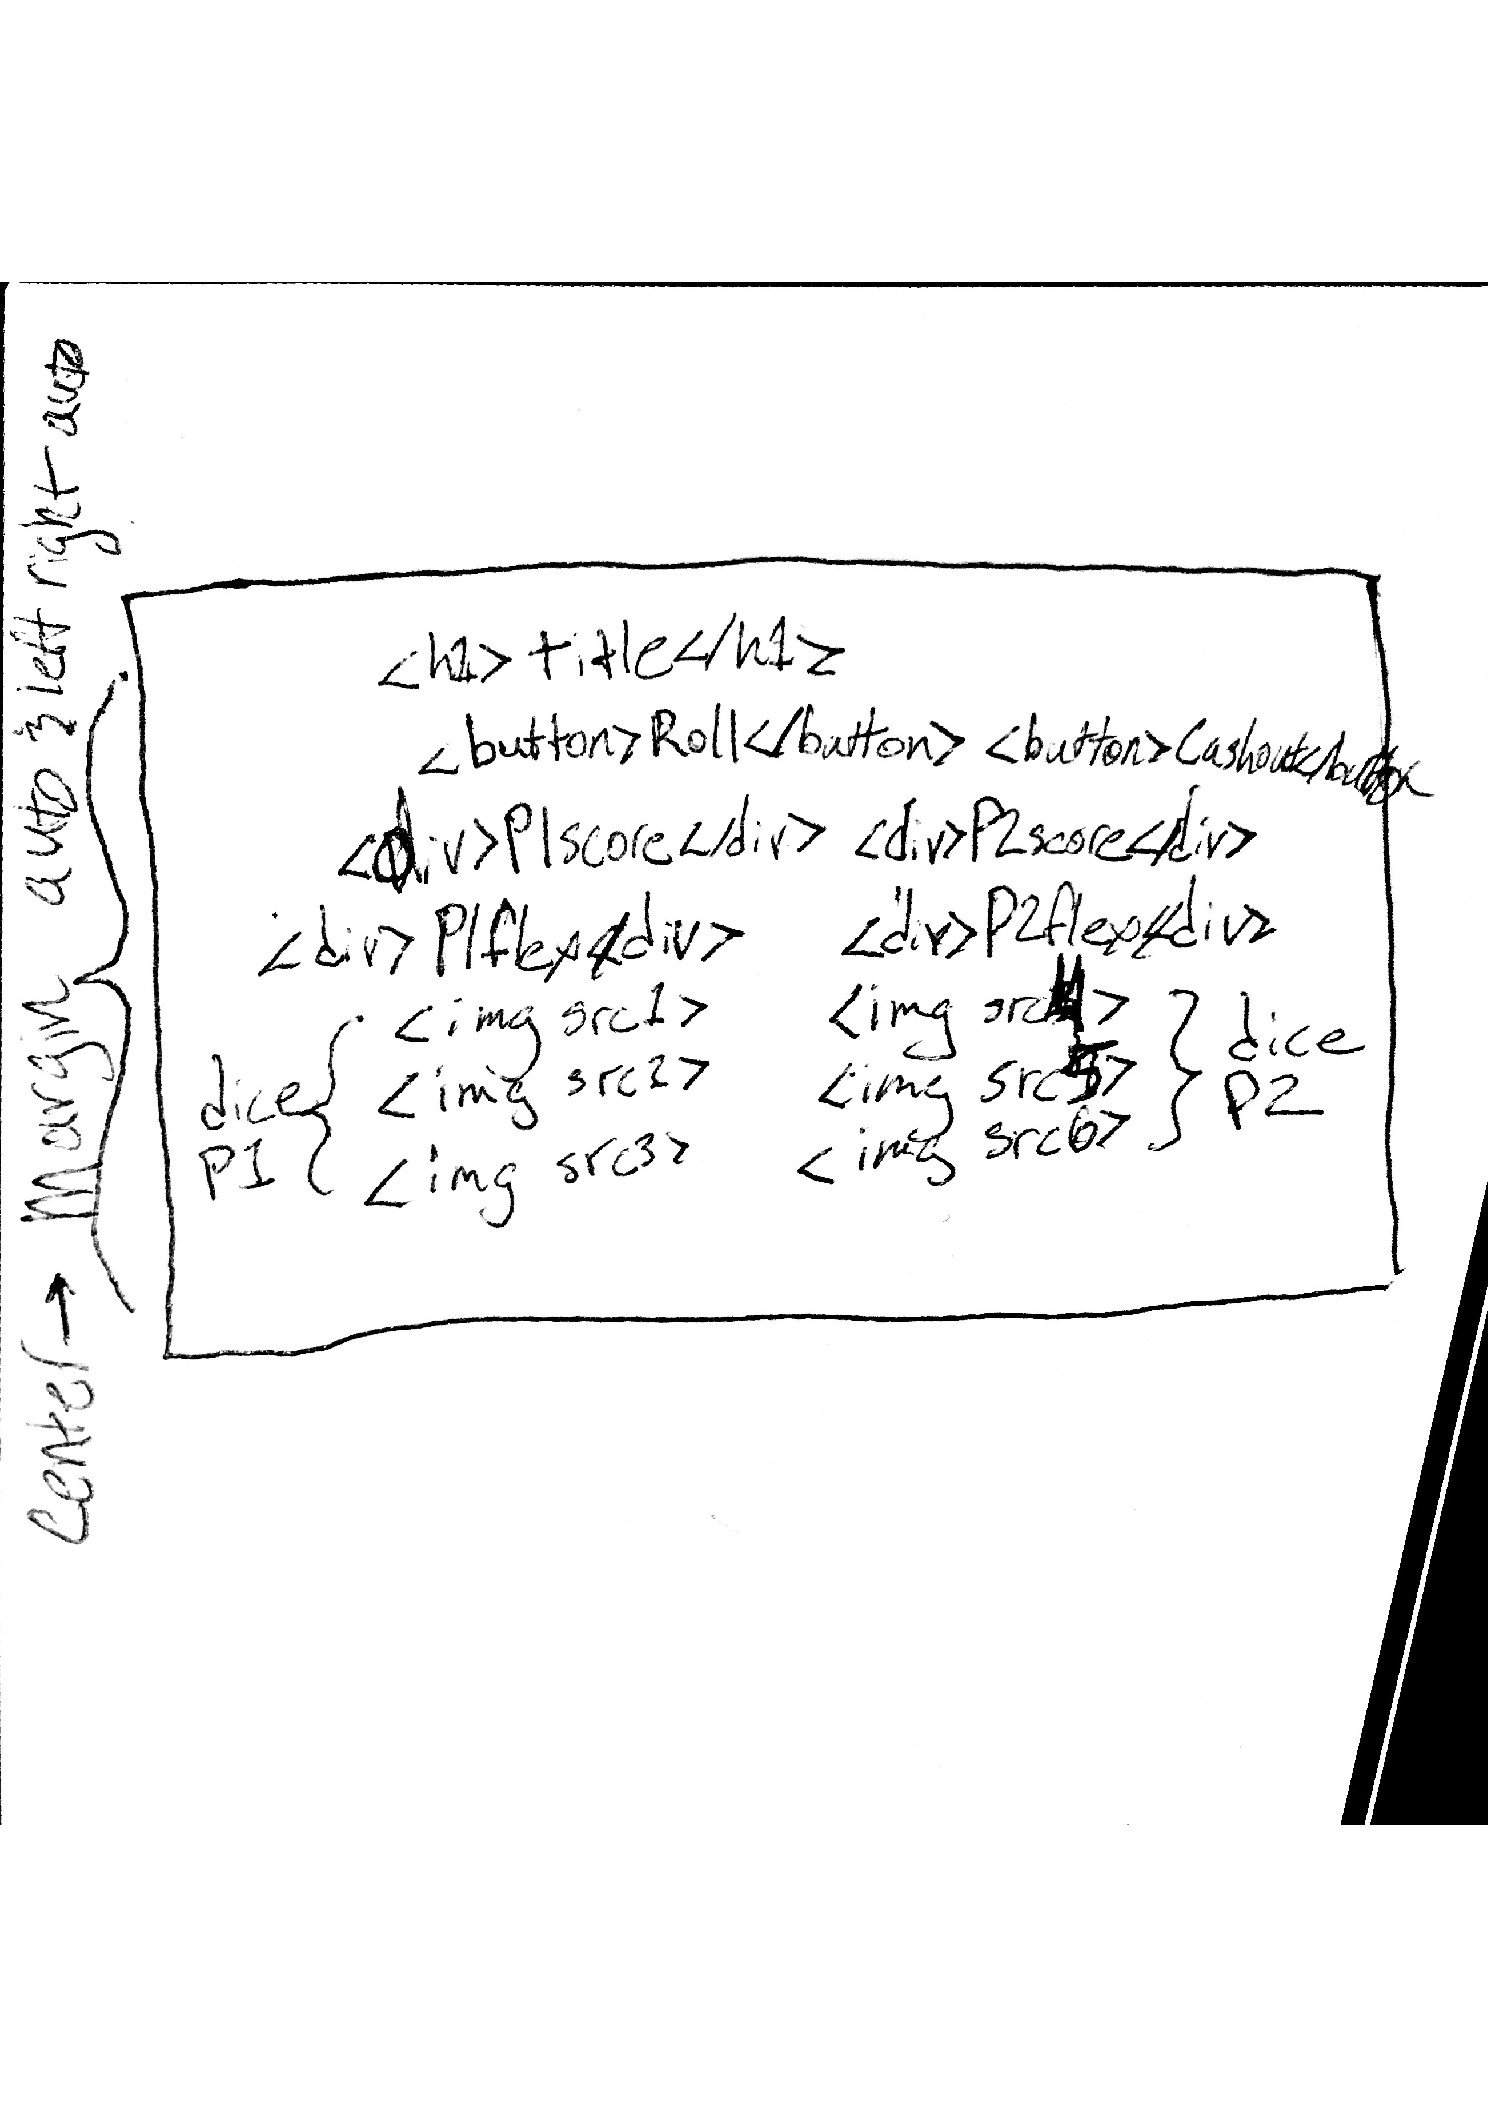 Center → Margin auto & left right auto
<h1> title</h1>
<button>Roll</button> <button>Cashout</button>
<div>P1score</div> <div>P2score</div>
<div>P1flex</div> <div>P2flex</div>
<img src1> <img src4>
<img src2> <img src5>
<img src3> <img src6>
dice P1
dice P2